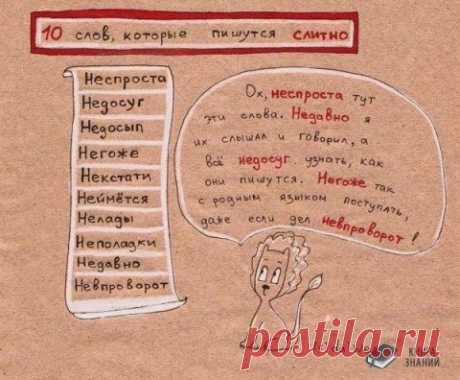 10 слов, которые пишутся слитно
Неспроста
Недосуг
Недосып
Негоже
Некстати
Неймётся
Нелады
Неполадки
Недавно
Невпроворот
Ох, неспроста тут
эти слова. Недавно я
их слышал и говорил, а
всё недосуг узнать, как
они пишутся. Негоже так
с родным языком поступать,
даже если дел невпроворот!
postila.ru
ЗНАНИЙ